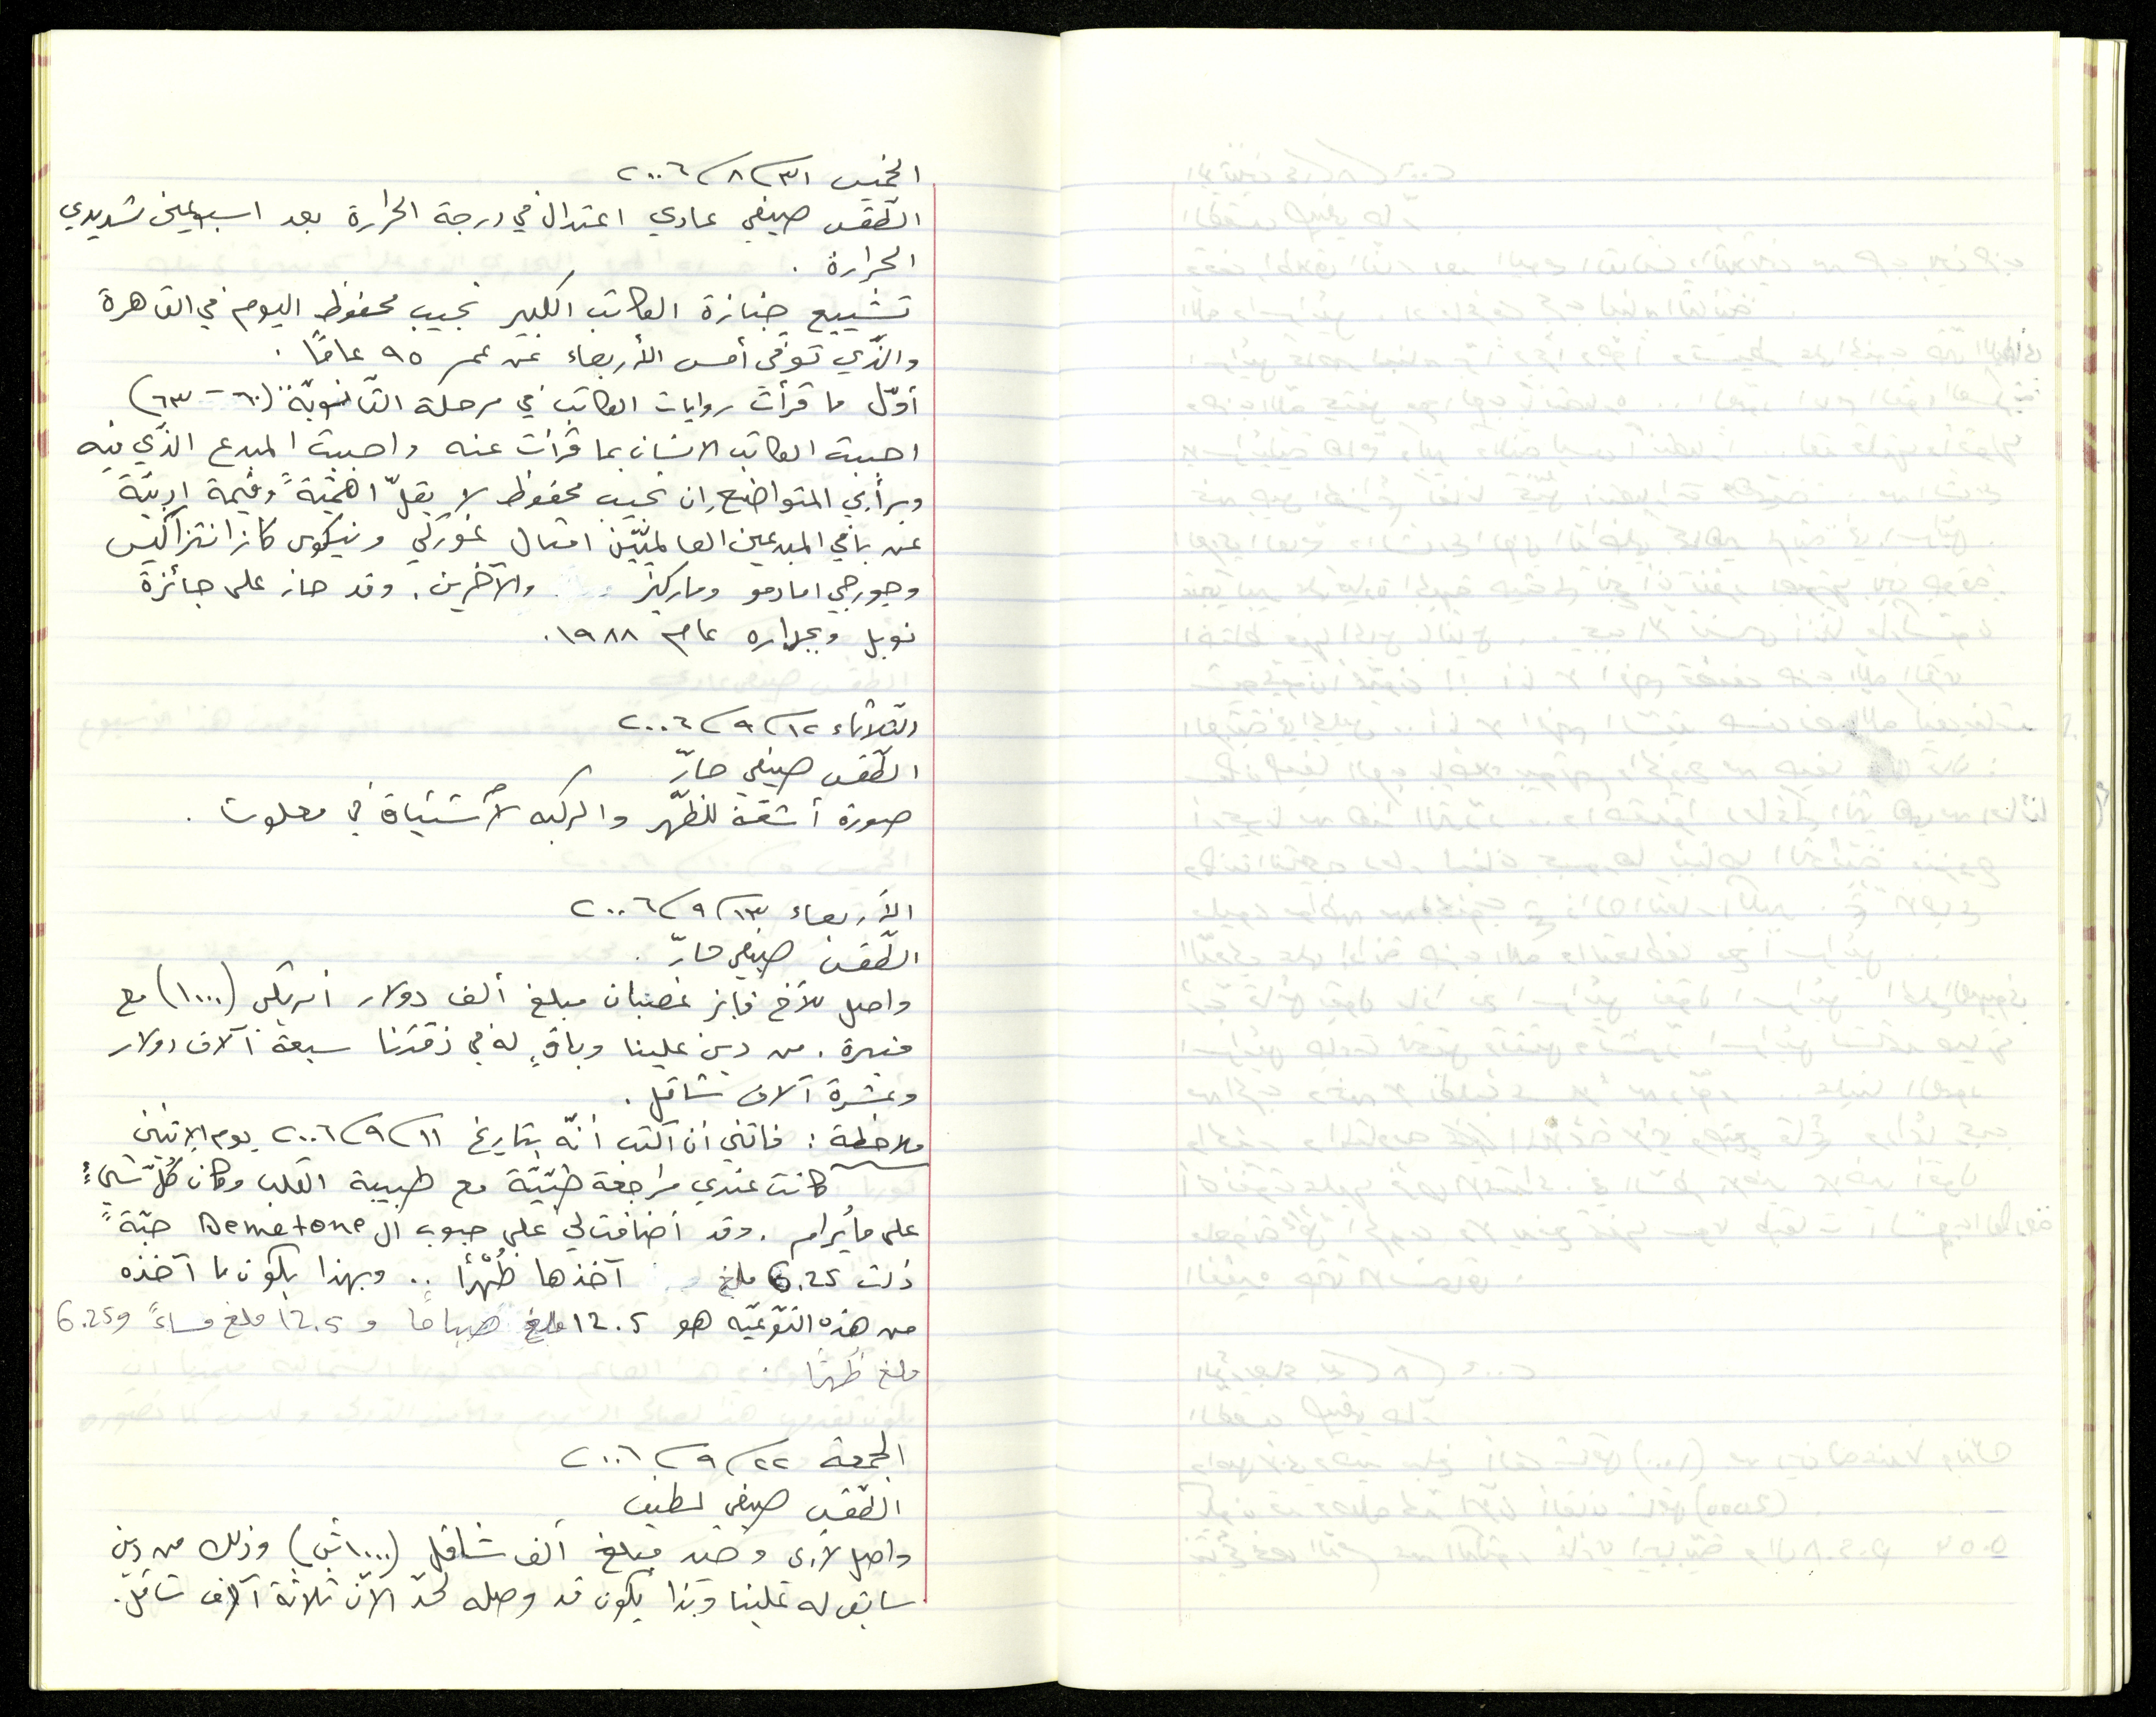 الخميس ٣١/٨/٢٠٠٦
الطّقس صيفي عادي اعتدال في درجة الحرارة بعد اسبوعين شديدي
الحرارة .
تشييع جنازة الكاتب الكبير نجيب محفوظ اليوم في القاهرة
والذّي توفى أمس الأربعاء عن عمر ٩٥ عامًا .
أوّل ما قرأت روايات الكاتب في مرحلة الثّانويّة (٦٠ - ٦٣)
احببت الكاتب الانسان بما قرأت عنه واحببت المبدع الذّي فيه
وبرأيي المتواضع إن نجيب محفوظ لا يقلّ اهميّةً وقيمة ادبيّة
عن باقي المبدعين العالميّين امثال غوركي ونيكوس كازانتزاكيس
وجورجي امادمو وماركيز والآخرين . وقد حاز على جائزة
نوبل وبجداره عام ١٩٨٨ .
الثّلاثاء ١٢/٩/٢٠٠٦
الطّقس صيفي حارّ .
صورة أشعّة للظّهر والركبه لأشتياق في معلوت .
الأربعاء ١٣/٩/٢٠٠٦
الطّقس صيفي حارّ .
واصل للأخ فايز غضبان مبلغ ألف دولار أمريكي (١٠٠٠) مع
منيرة . من دين علينا وباقٍ له في ذمّتنا سبعة آلاف دولار
وعشرة آلاف شاقل .
ملاحظة : فاتني أن أكتب أنّه بتاريخ ١١/٩/٢٠٠٦ يوم الإثنين
كانت عندي مراجعة طبّيّة مع طبيبة القلب وكان كُلّ شيءٍ
على ما يُرام . وقد أضافت لي على حبوب ال Demetone حبّةً
ذات 6.25 ملغ آخذها ظُهْرًا .. وبهذا يكون ما آخذه
من هذه النّوعيّه هو 12.5 ملغ صباحًا و 12.5 ملغ مساءً و 6.25
ملغ ظُهرًا .
الجمعة ٢٢/٩/٢٠٠٦
الطّقس صيفي لطيف
واصل لأبي وحيد مبلغ ألف شاقل (١٠٠٠ش) وذلك من دين
سابق له علينا وبذا يكون قد وصله لحدّ الآن ثلاثة آلاف شاقل .